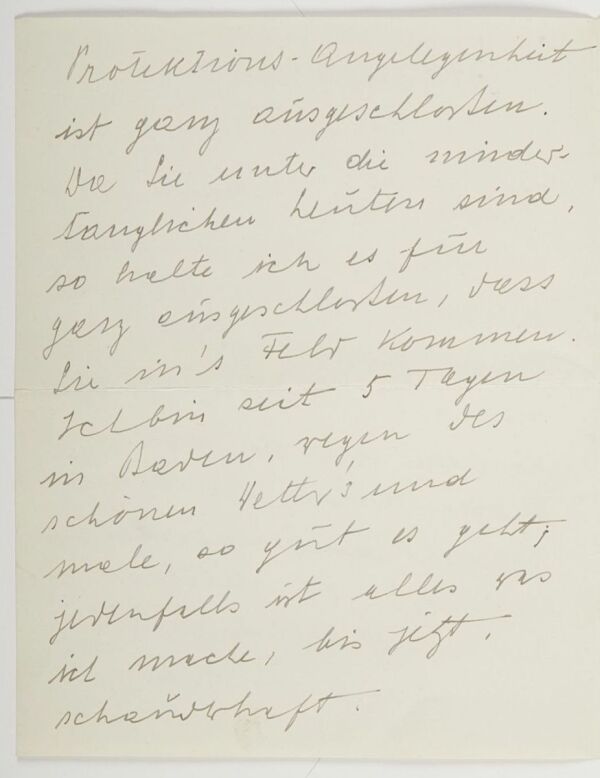 Protektions-Angelegenheit
ist ganz ausgeschlossen.
Da Sie unter die minder-
tauglichen Leuten sind,
so halte ich es für
ganz ausgeschlossen, dass
Sie in's Feld kommen.
Ich bin seit 5 Tagen
in Baden, wegen des
schönen Wetter's und
male, so gut es geht;
jedenfalls ist alles was
ich mache, bis jetzt,
schauderhaft.